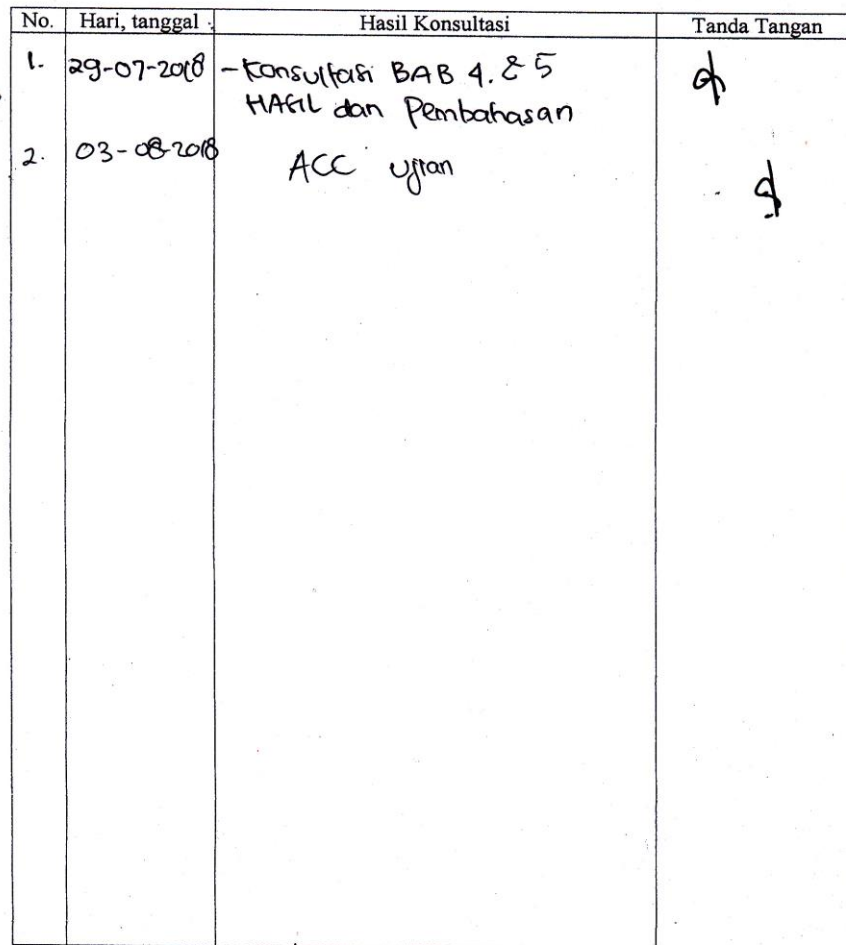 No. Hari, tanggal Hasil Konsultasi Tanda Tangan
1. 29-07-2018 - Konsultasi BAB 4. & 5
HASIL dan Pembahasan
2. 03-08-2018 ACC Ujian